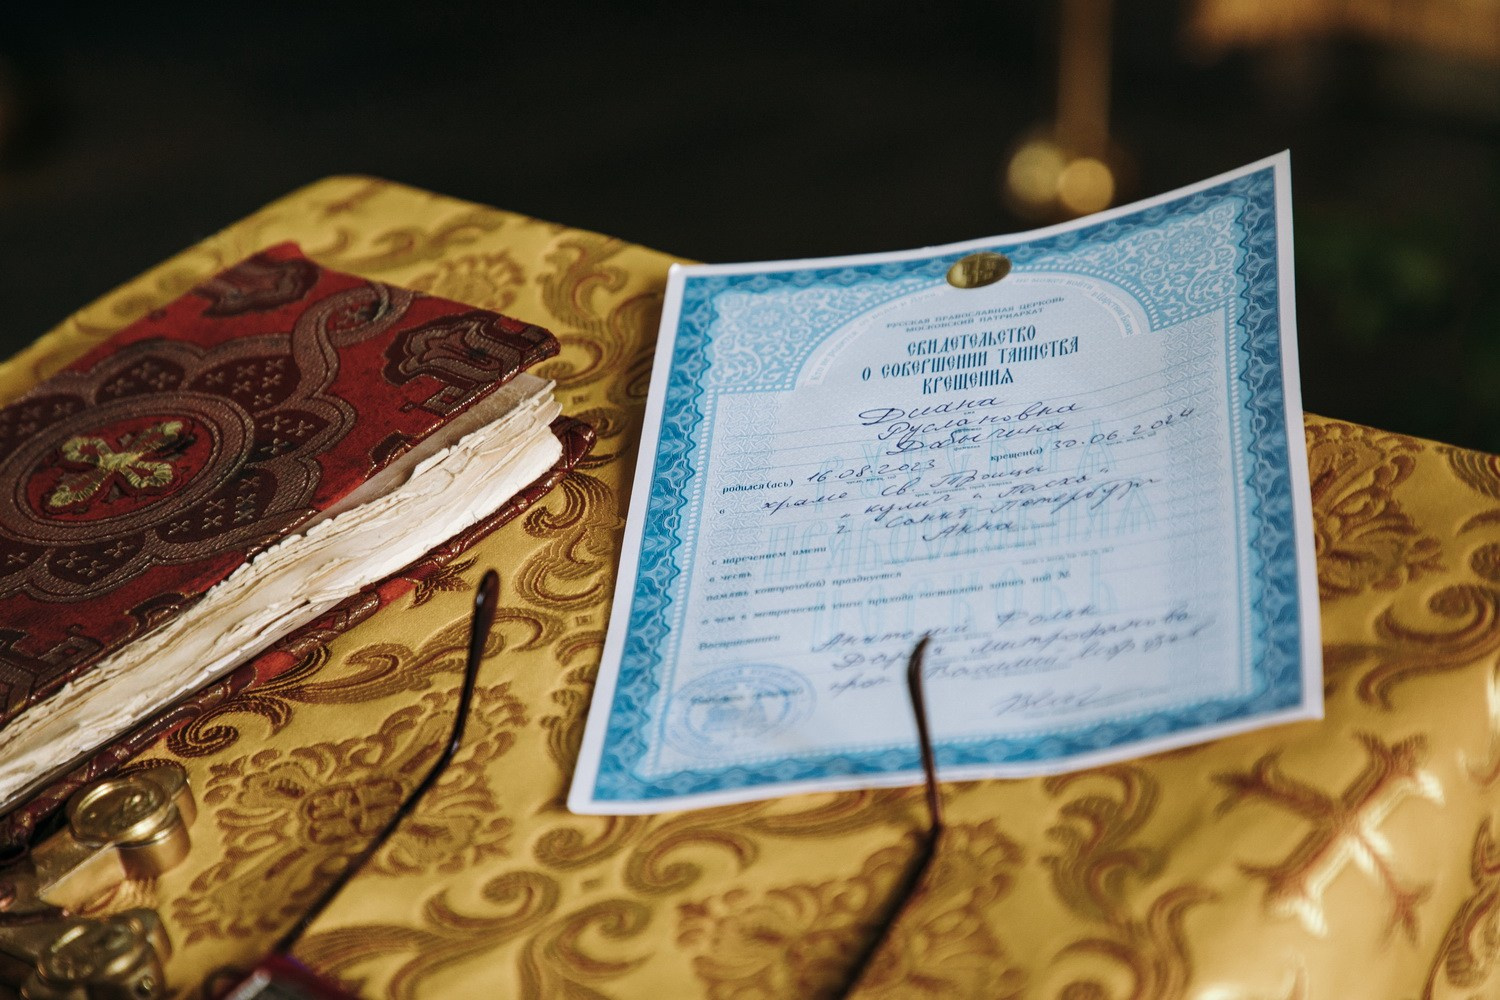 РУССКАЯ ПРАВОСЛАВНАЯ ЦЕРКОВЬ
МОСКОВСКИЙ ПАТРИАРХАТ
СВИДЕТЕЛЬСТВО
О СОВЕРШЕНИИ ТАИНСТВА
КРЕЩЕНИЯ
Диана
Руслановна
Дабыгина
родился(ась) 16.08.2023 крещен(а) 30.06.2024
в храме Св. Троицы
"кулич и Пасха"
г. Санкт-Петербург
с наречением имени Анна
в честь
память которого(ой) празднуется
о чем в метрической книге прихода составлена запись под №
Восприемники Анатолий Фольк
Дарья Митрофанова
прот. Василий